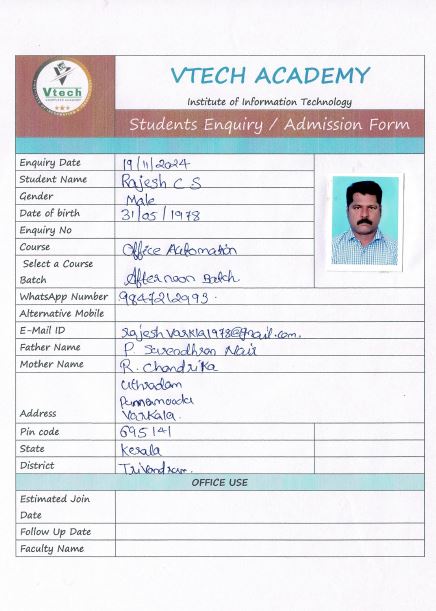 Vtech
COMPUTER ACADEMY
VTECH ACADEMY
Institute of Information Technology
Students Enquiry / Admission Form
Enquiry Date 19/11/2024
Student Name Rajesh C S
Gender Male
Date of birth 31/05/1978
Enquiry No
Course Office Automation
Select a Course
Batch Afternoon Batch
WhatsApp Number 9847212993.
Alternative Mobile
E-Mail ID rajeshvarkla1978@gmail.com.
Father Name P. Surendhran Nair
Mother Name R. Chandrika
Uthradam
Punnamoodu
Address Varkala.
Pin code 695141
State Kerala
District Trivandrum.
OFFICE USE
Estimated Join
Date
Follow Up Date
Faculty Name